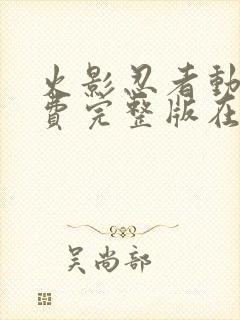 火影忍者動
費完整版在
吳尚部